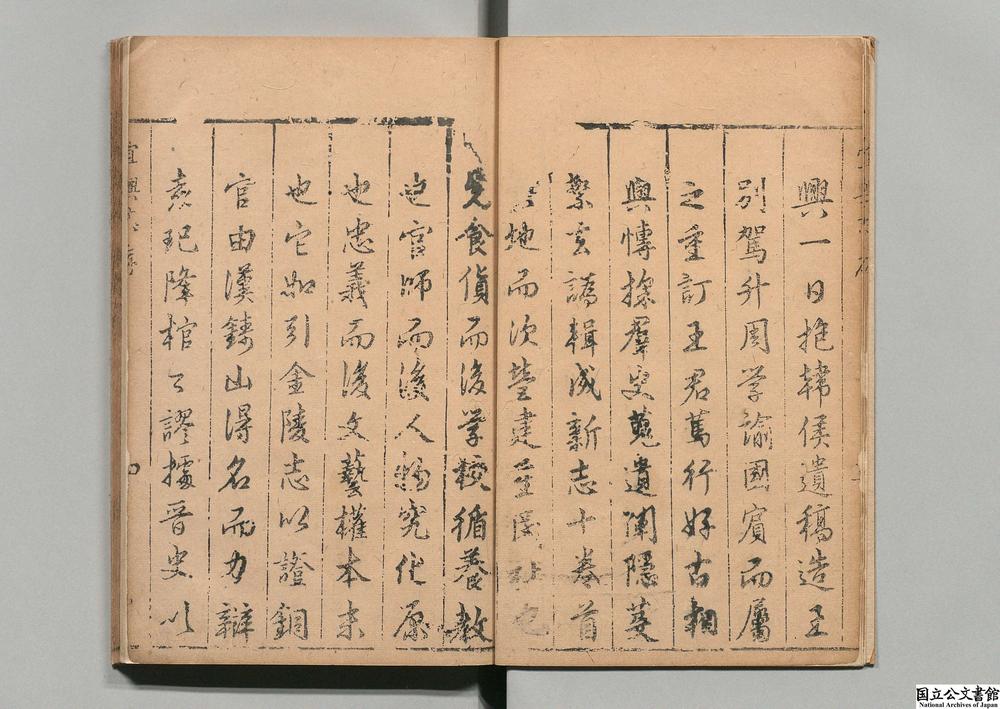 興一日抱韓侯遺稿造王
別駕升周学諭國賓而屬
之重訂王君篤行好古
輿慱採羣史蒐遺闡隱芟
繁玄譌輯成新志十卷首
地而次營建
食貨而後学校循養教
也官師而後人物究化原
也忠義而後文藝權本末
也它如引金陵志以證銅
官由漢鑄山得名而力辯
袁玘降棺之謬據晉史以
国立公文書館
National Archives of Japan